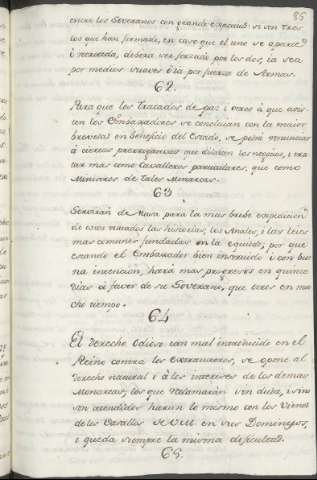 85
entre los Soveranos con grande exactitud: si son tres
los que han formado, en caso que el uno se aparte
i retroceda, deberá ser forzado por los dos, ia sea
por medios suaves ó ia por fuerza de Armas.
62.
Para que los tratados de paz i otros á que asis
ten los Embaxadores se concluian con la maior
brevetas en beneficio del Estado, se podrá renunciar
á ciertas prerrogativas que dilatan los negocios, i tra
tar mas como Cavalleros particulares, que como
Ministros de tales Monarcas.
63
Servirán de Musa para la mas brebe expedicion
de esos tratados las historias, los Anales, i las leies
mas comunes fundadas en la equidad, por que
estando el Embaxador bien instruido i con bue
na intencion, hará mas progresos en quince
dias á favor de su Soverano, que otros en mu
cho tiempo.
64
El derecho Odioso tan mal introducido en el
Reino contra los extranjeros, se opone al
derecho natural i á los intereses de los demas
Monarcas, los que reclamarán sin duda, i sino
son atendidos harán lo mismo con los
de los Vasallos de V.M. en sus Dominios,
i queda siempre la misma dificultad.
65